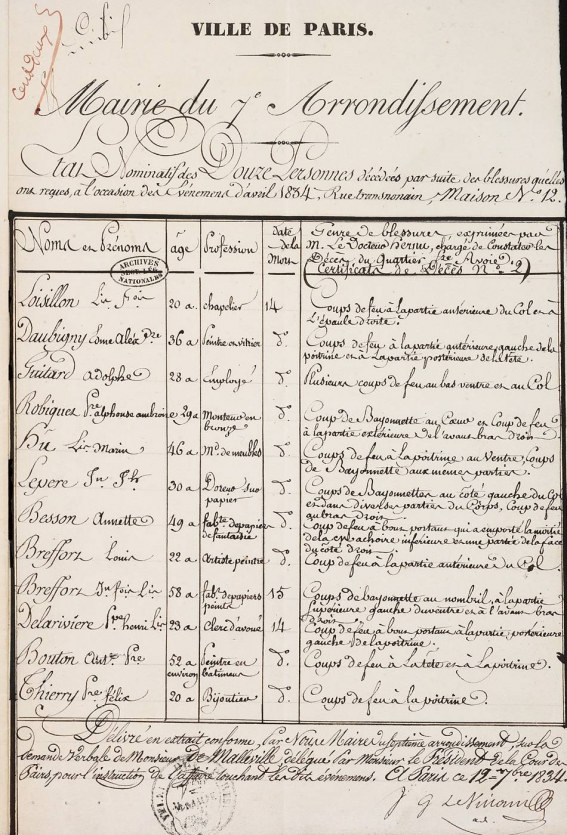 Civil
VILLE DE PARIS.
Mairie du 7e Arrondissement.
Etat Nominatif des Douze Personnes décédées par suite des blessures qu'elles
ont reçues, à l'occasion des Evénemens d'avril 1834, Rue transnonain, Maison No. 12.
Noms et Prénoms
âge
Profession
date de la Mort
Genre de blessures, exprimées par
M. Le Docteur hernu, chargé de Constater les
Décès du Quartier Ste Avoie.
(Certificats de Décès No. 2)
ARCHIVES NATIONALES
Loisillon Lis fois 20 a chapelier 14 Coups de feu à la partie antérieure du Col et à
L'épaule droite.
Daubigny Edme Alexdre 36 a Peintre en vitrier do. Coups de feu à la partie antérieure, gauche de la
poitrine et à la partie postérieure de la tête.
Guitard adolphe 28 a Employé do. Plusieurs coups de feu au bas ventre et au Col
Robiquet Pre alphonse ambroise 29 a Monteur en bronze do. Coup de Bayonnette au Cœur et Coup de feu
à la partie extérieure de l'avant bras droit.
hu Lis Marin 46 a Md. de meubles do. Coups de feu à la poitrine au Ventre, Coups
de Bayonnette aux mêmes parties.
Lepere Jn Jh 30 a Doreur sur papier do. Coups de Bayonnettes au côté gauche du Col
et dans diverses parties du Corps, Coup de feu
au bras droit.
Besson Annette 49 a fabte. de papier de fantaisie do. Coup de feu à bout portant qui a emporté la moitié
de la machoire inférieure et une partie de la face
du côté droit.
Breffort Louis 22 a Artiste peintre do. Coup de feu à la partie antérieure du Col.
Breffort Jn fois Lis 58 a fabt. de papiers peints 15 Coups de bayonnette au nombril, à la partie
supérieure gauche du ventre et à l'avant bras
droit.
Delarivière Ppe. henri Lis 23 a Clerc d'avoué 14 Coup de feu à bout portant à la partie, postérieure
gauche de la poitrine.
Bouton Ante. Pre 52 a environ Peintre en bâtimens do. Coups de feu à La tête et à La poitrine.
Thierry Pre félix 20 a Bijoutier do. Coups de feu à la poitrine.
Délivré en extrait conforme, par Nous Maire du septième arrondissement, sur la
demande Verbale de Monsieur de Malleville délégué par Monsieur le Président de la Cour des
Pairs, pour l'instruction de l'affaire touchant les dits événemens. A Paris ce 12 7bre 1834.